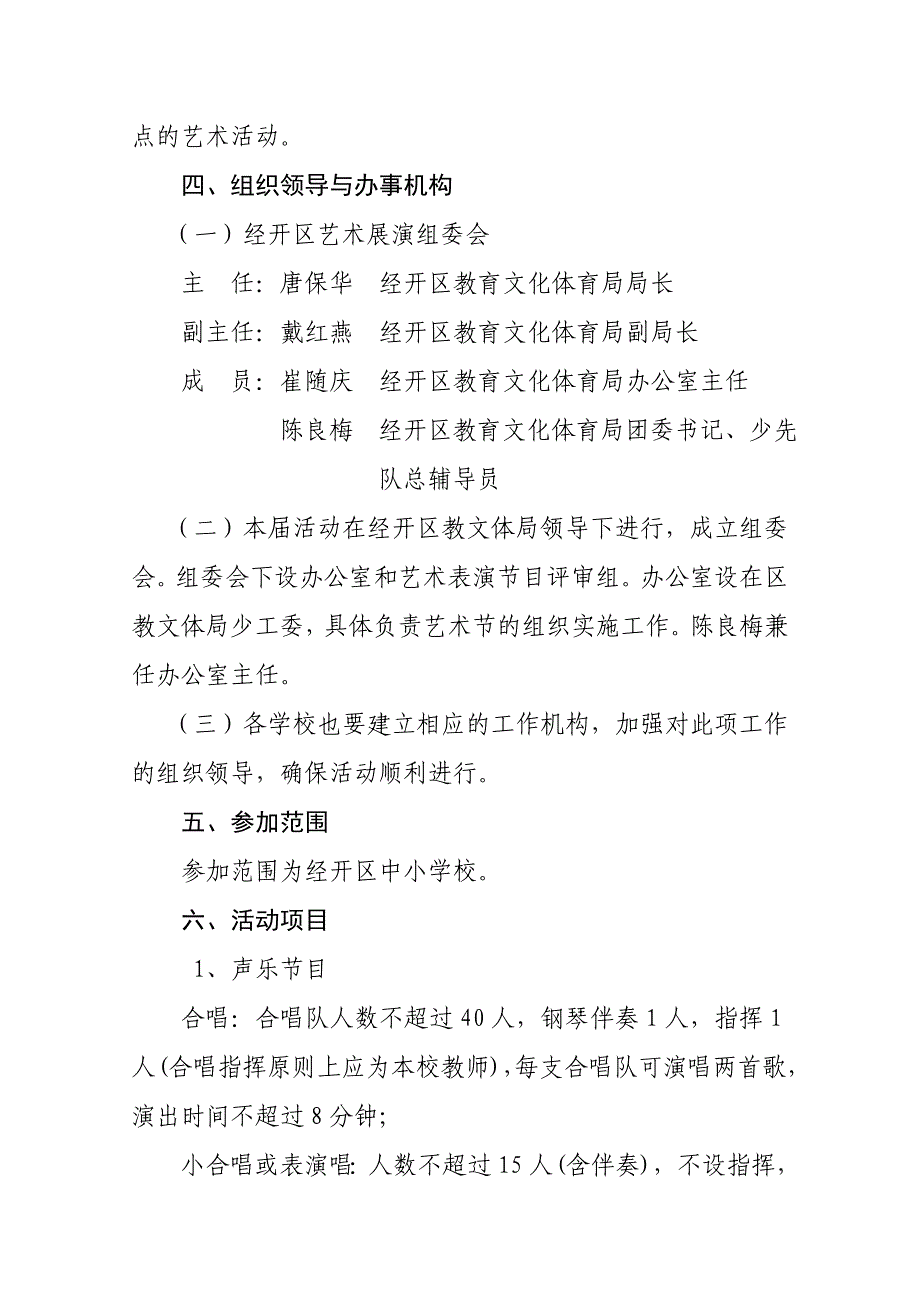 点的艺术活动。
四、组织领导与办事机构
（一）经开区艺术展演组委会
主　任：唐保华　经开区教育文化体育局局长
副主任：戴红燕　经开区教育文化体育局副局长
成　员：崔随庆　经开区教育文化体育局办公室主任
陈良梅　经开区教育文化体育局团委书记、少先
队总辅导员
（二）本届活动在经开区教文体局领导下进行，成立组委
会。组委会下设办公室和艺术表演节目评审组。办公室设在区
教文体局少工委，具体负责艺术节的组织实施工作。陈良梅兼
任办公室主任。
（三）各学校也要建立相应的工作机构，加强对此项工作
的组织领导，确保活动顺利进行。
五、参加范围
参加范围为经开区中小学校。
六、活动项目
1、声乐节目
合唱：合唱队人数不超过 40 人，钢琴伴奏 1 人，指挥 1
人(合唱指挥原则上应为本校教师)，每支合唱队可演唱两首歌，
演出时间不超过 8 分钟；
小合唱或表演唱：人数不超过 15 人(含伴奏)，不设指挥，